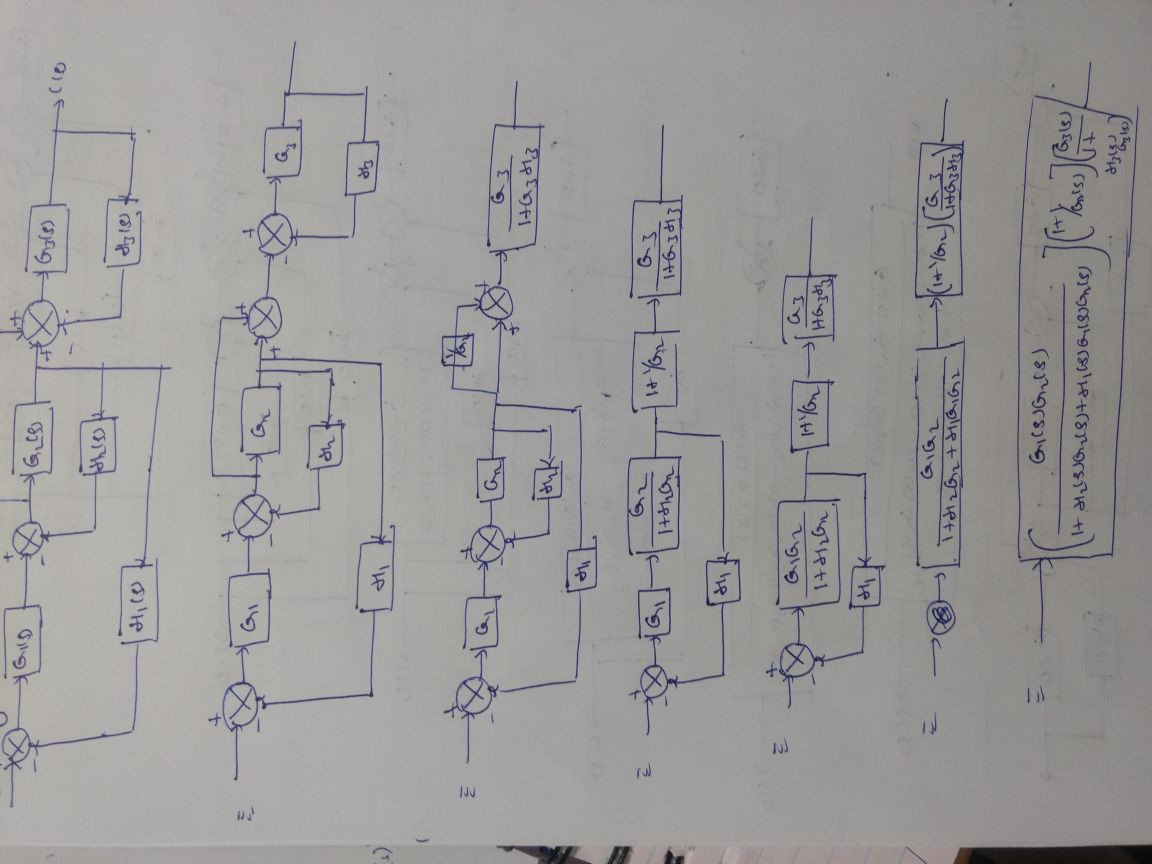 G1(s) G2(s) G3(s) C(s)
H2(s) H3(s)
H1(s)
≡ G1 G2 G3
H2 H3
H1
≡ G1 G2 1/G2 G3/(1+G3H3)
H2
H1
≡ G1 G2/(1+H2G2) 1+1/G2 G3/(1+G3H3)
H1
≡ G1G2/(1+H2G2) 1+1/G2 G3/(1+G3H3)
H1
≡ G1G2/(1+H2G2+H1G1G2) (1+1/G2)(G3/(1+G3H3))
≡ [G1(s)G2(s)/(1+H2(s)G2(s)+H1(s)G1(s)G2(s))] [1+1/G2(s)] [G3(s)/(1+H3(s)G3(s))]